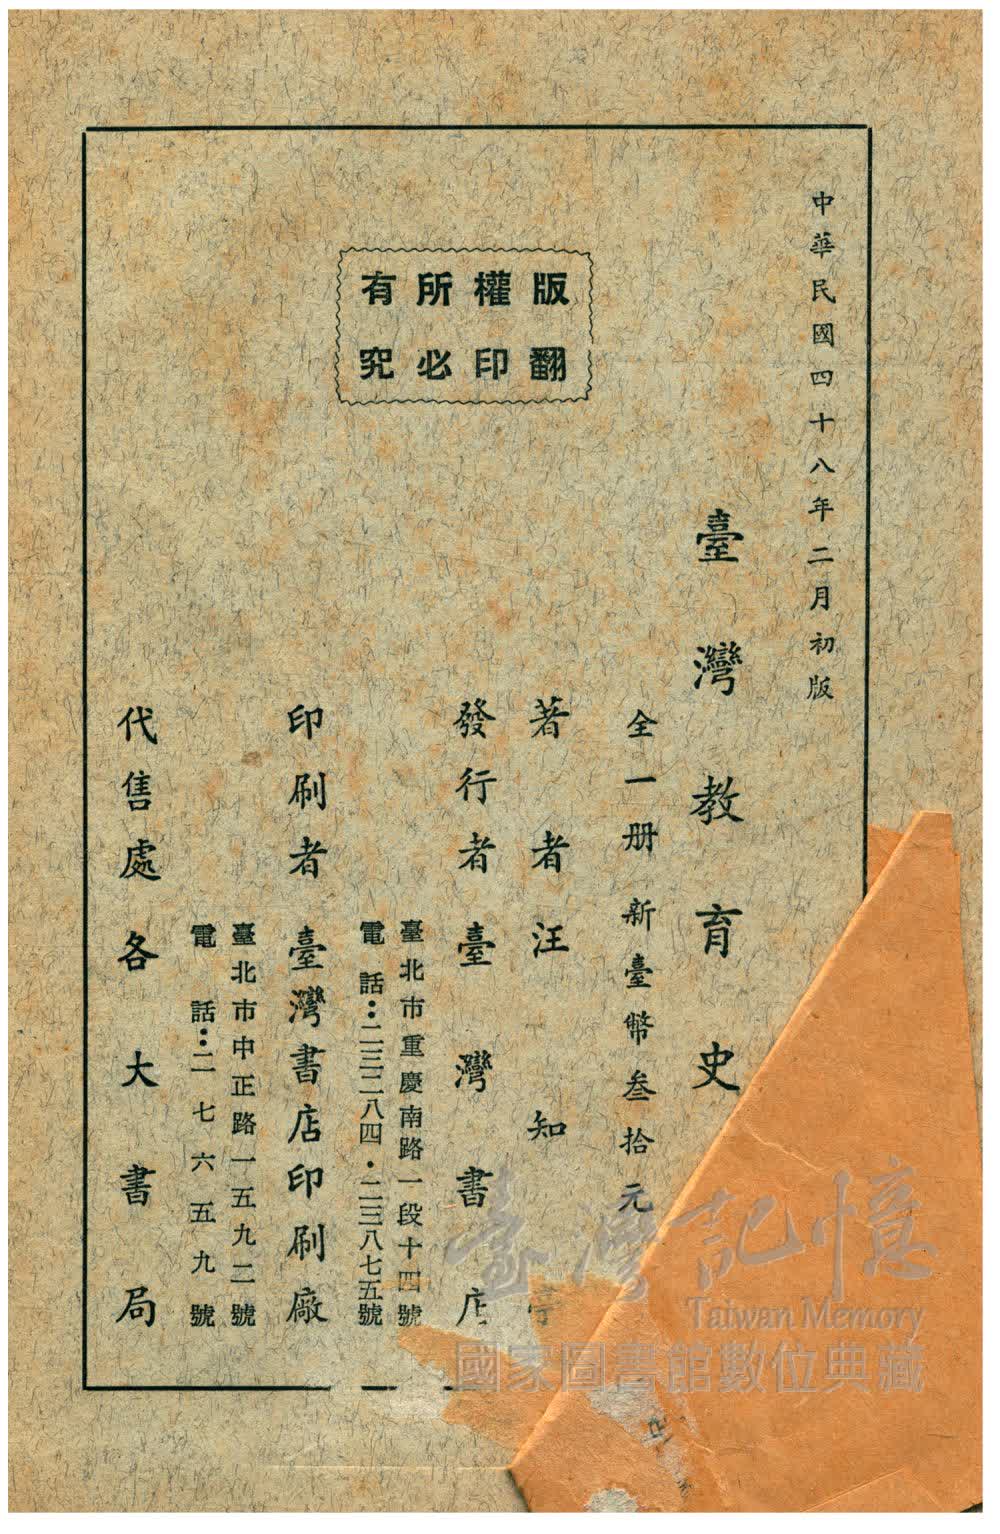 中華民國四十八年二月初版
版權所有
翻印必究
臺灣教育史
全一册新臺幣叁拾元
著者汪知亭
發行者臺灣書店
臺北市重慶南路一段十四號
電話：二三二八四・二三八七五號
印刷者臺灣書店印刷廠
臺北市中正路一五九二號
電話：二七六五九號
代售處各大書局
臺灣記憶
Taiwan Memory
國家圖書館數位典藏